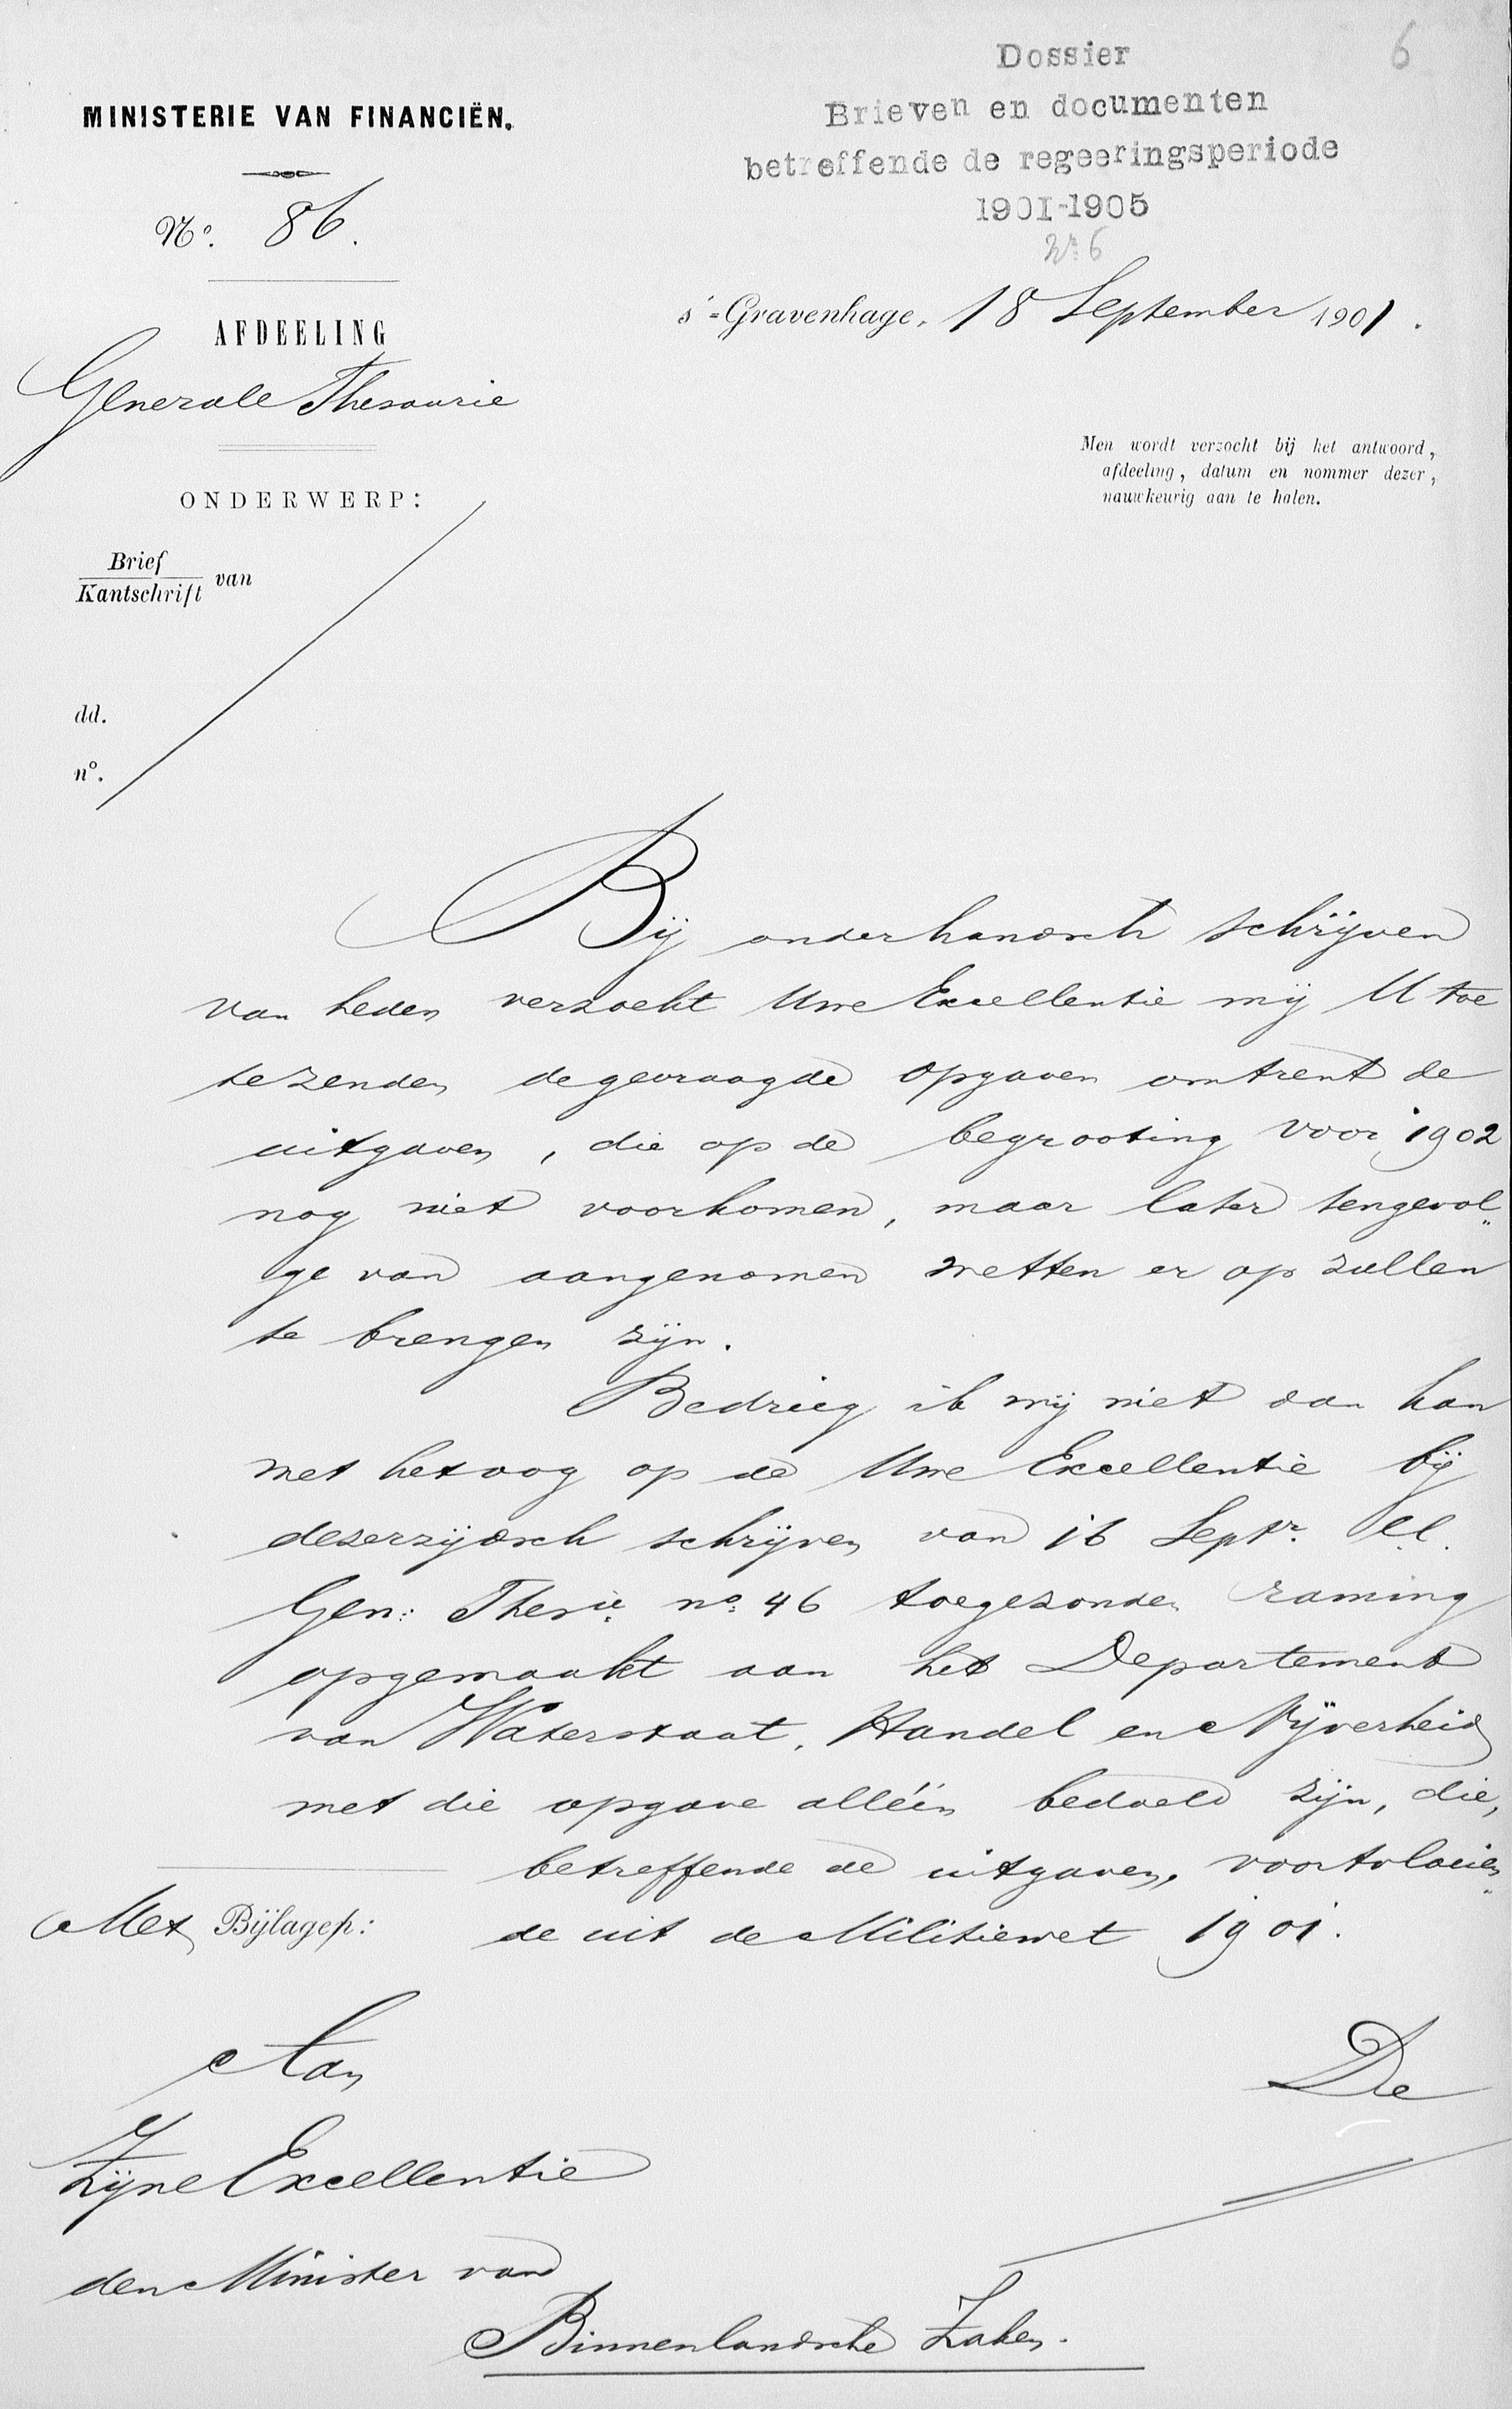 Dossier
6
Brieven en documenten
betreffende de regeeringsperiode
1901-1905
Nº 6
MINISTERIE VAN FINANCIËN.
Nº. 86.
AFDEELING
Generale Thesaurie
ONDERWERP:
Brief
Kantschrift van
dd.
nº.
s'=Gravenhage, 18 September 1901.
Men wordt verzocht bij het antwoord,
afdeeling, datum en nommer dezer,
nauwkeurig aan te halen.
Bij onderhandsch schrijven
van heden verzoekt Uwe Excellentie mij U toe
te zenden de gevraagde opgaven omtrent de
uitgaven, die op de begrooting voor 1902
nog niet voorkomen, maar later tengevol„
ge van aangenomen wetten er op zullen
te brengen zijn.
Bedrieg ik mij niet dan kan
met het oog op de Uwe Excellentie bij
dezerzijdsch schrijven van 16 Septr. l.l.
Gen: Therie nº 46 toegezonden raming
opgemaakt aan het Departement
van Waterstaat, Handel en Nijverheid
met die opgave alléén bedoeld zijn, die,
betreffende de uitgaven, voortvloeien„
de uit de Militiewet 1901.
Met Bijlagen:
Aan
De
Zijne Excellentie
den Minister van
Binnenlandsche Zaken.